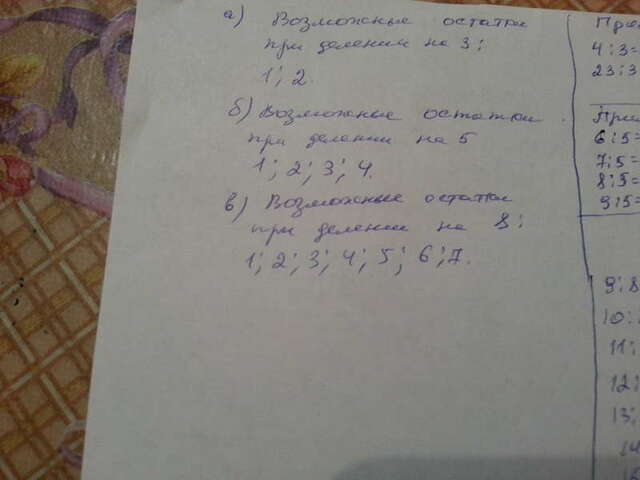 а) Возможные остатки
при делении на 3:
1; 2.
б) Возможные остатки
при делении на 5
1; 2; 3; 4.
в) Возможные остатки
при делении на 8:
1; 2; 3; 4; 5; 6; 7.
При
4:3=
23:3
При
6:5=
7:5=
8:5=
9:5=
9:8
10:
11:
12:
13:
14